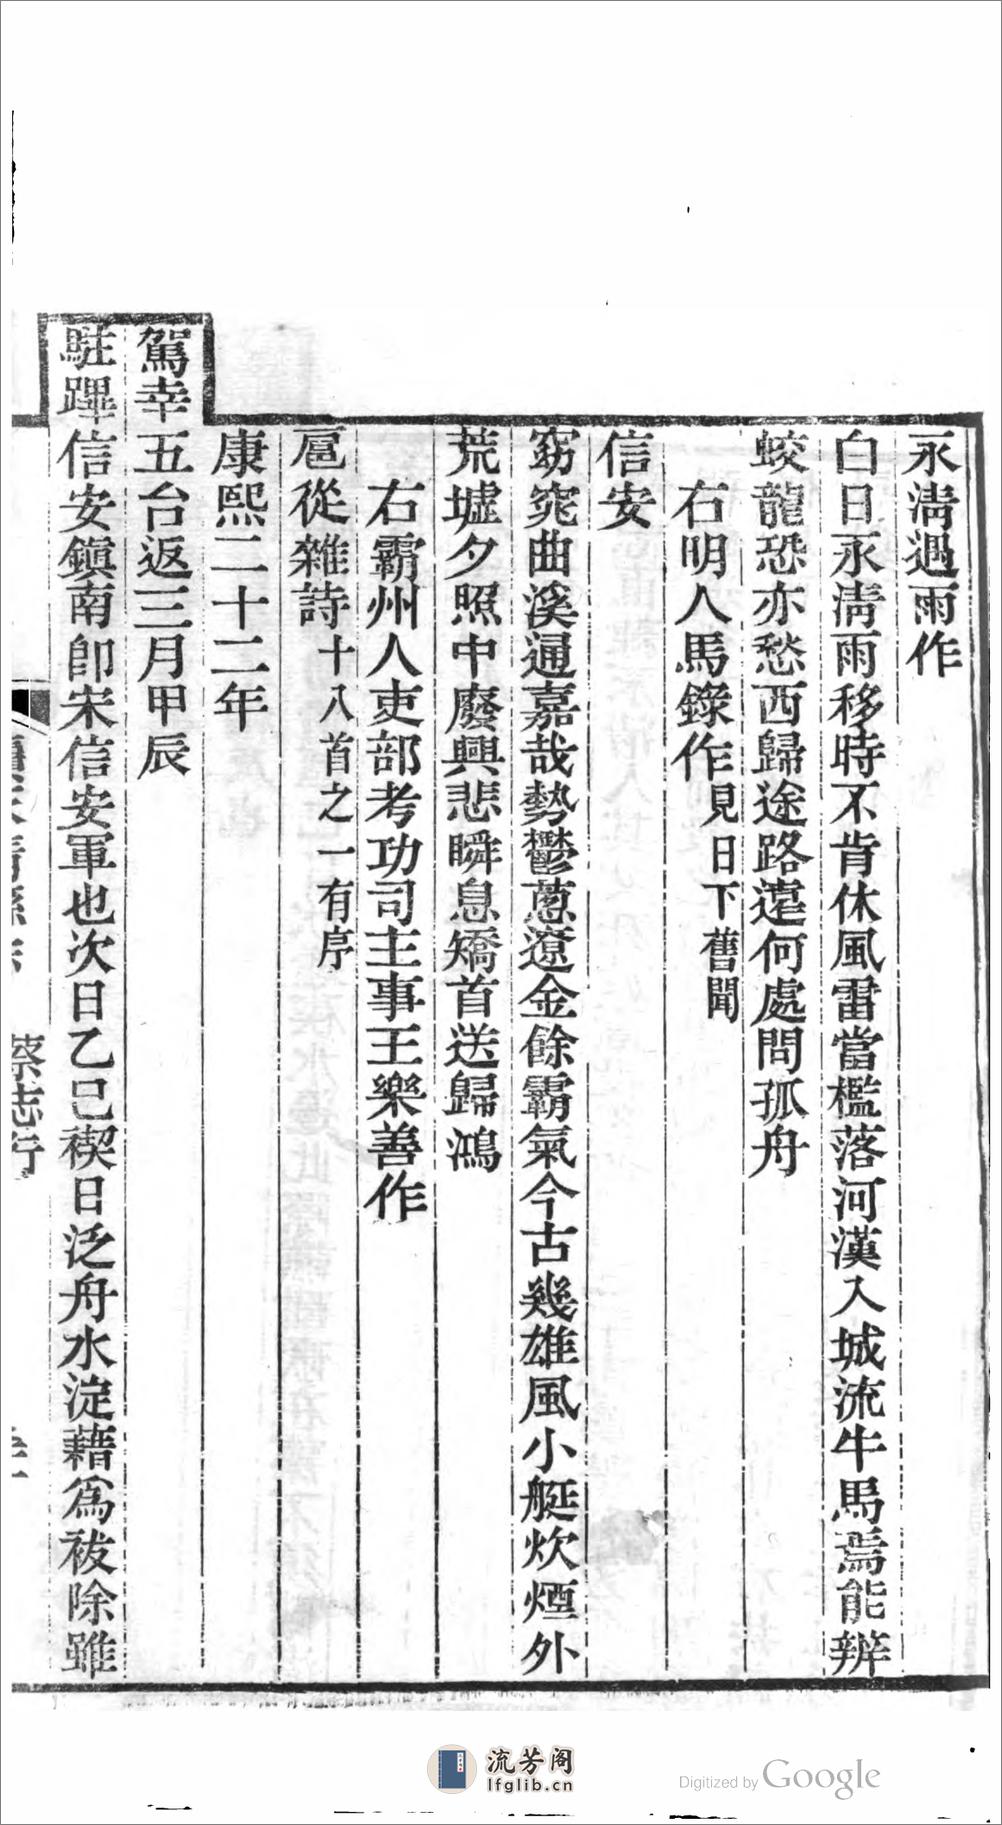 永淸遇雨作
白日永淸雨移時不肯休風雷當檻落河漢入城流牛馬焉能辨
蛟龍恐亦愁西歸途路遠何處問孤舟
右明人馬錄作見日下舊聞
信安
窈窕曲溪通嘉哉勢鬱葱遼金餘霸氣今古幾雄風小艇炊煙外
荒墟夕照中廢興悲瞬息矯首送歸鴻
右霸州人吏部考功司主事王樂善作
扈從雜詩十八首之一有序
康熙二十二年
駕幸五台返三月甲辰
駐蹕信安鎭南卽宋信安軍也次日乙巳禊日泛舟水淀藉爲祓除雖
蔡志行
流芳阁
lfglib.cn
Digitized by Google